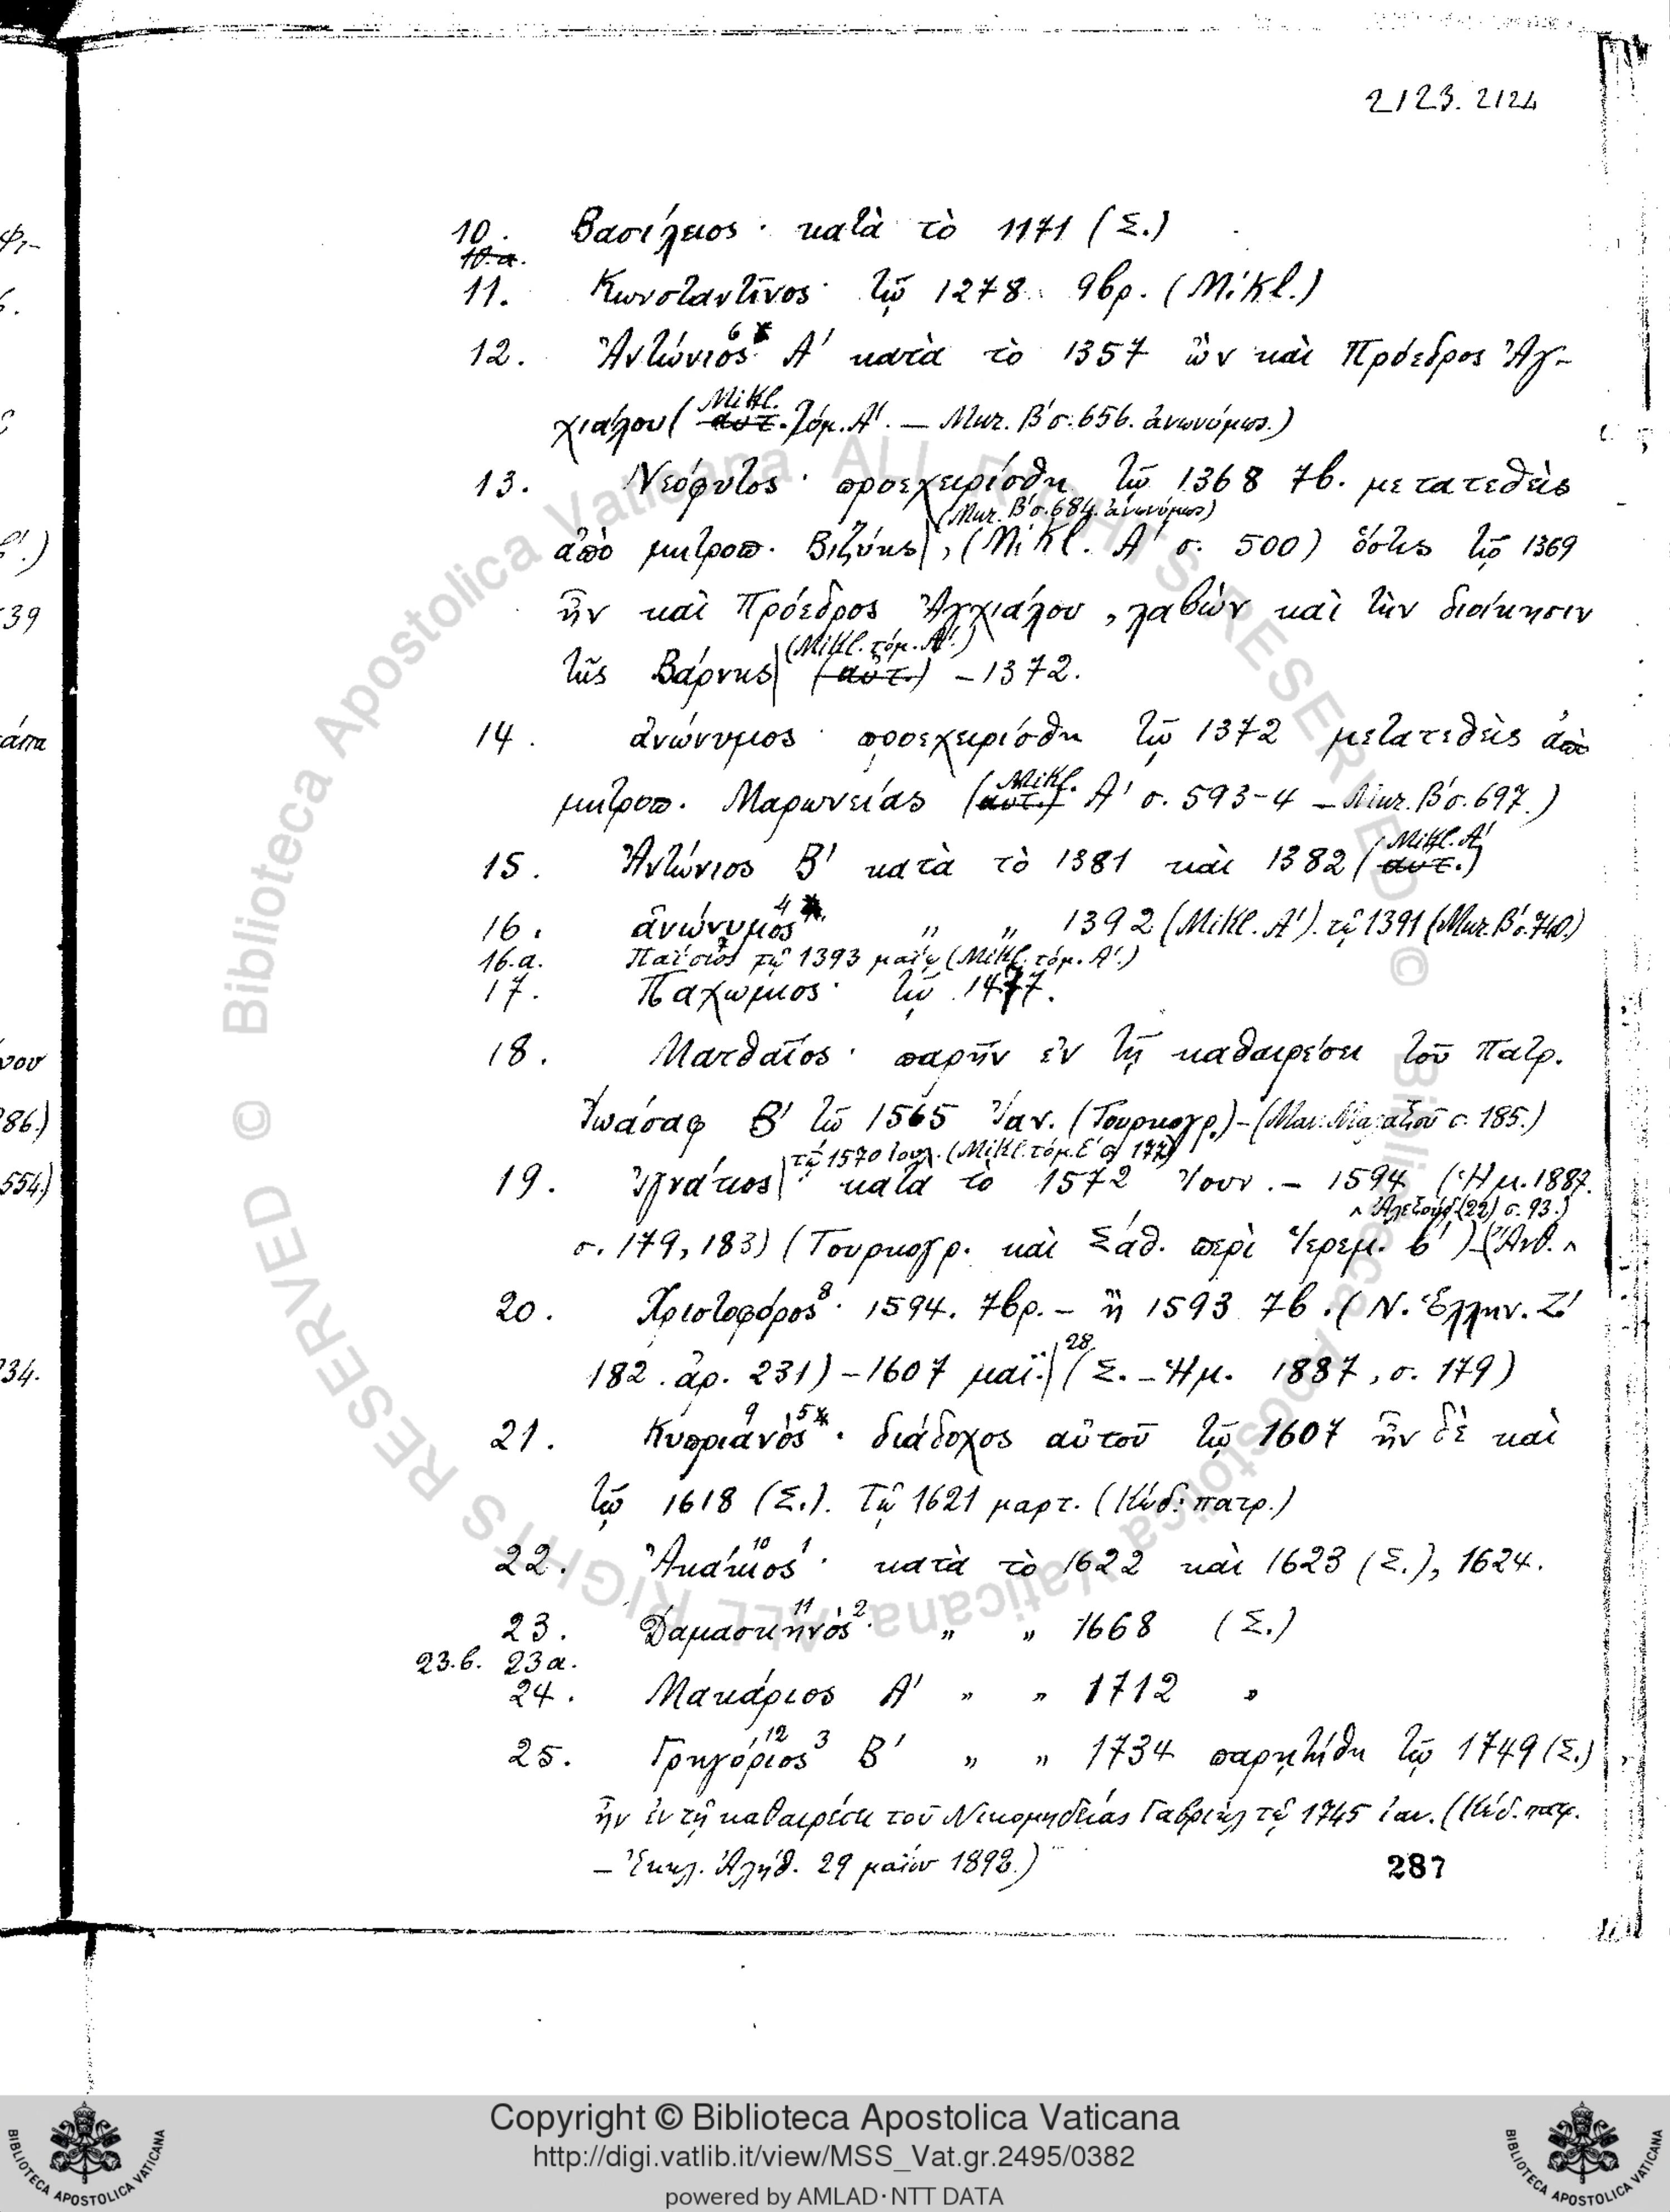 2123. 2124
10. Βασίλειος · κατὰ τὸ 1171 (Σ.)
10.a.
11. Κωνσταντῖνος · τῷ 1278 9βρ. (Mikl.)
12. Ἀντώνιος 6 Α' κατὰ τὸ 1357 ὢν καὶ Πρόεδρος Ἀγ-
χιάλου (αὐτ. Mikl. τόμ. Α'. — Μυζ. Β' σ. 656. ἀνωνύμως.)
13. Νεόφυτος · προεχειρίσθη τῷ 1368 7β. μετατεθεὶς
(Μυζ. Β' σ. 684. ἀνωνύμως)
ἀπὸ μητροπ. Βιζύης, (Mikl. Α' σ. 500) ὅστις τῷ 1369
ἦν καὶ Πρόεδρος Ἀγχιάλου, λαβὼν καὶ τὴν διοίκησιν
(Mikl. τόμ. Α'.)
τῆς Βάρνης (αὐτ.) – 1372.
14. ἀνώνυμος · προεχειρίσθη τῷ 1372 μετατεθεὶς ἀπὸ
μητροπ. Μαρωνείας (αὐτ.) Mikl. Α' σ. 593-4 — Μυζ. Β' σ. 697.)
15. Ἀντώνιος Β' κατὰ τὸ 1381 καὶ 1382 (αὐτ.) Mikl. Α'
16. ἀνώνυμος 4 " " 1392 (Mikl. Α'). τῷ 1391 (Μυζ. Β' σ. 740.)
16.a. Παΐσιος τῷ 1393 μαΐῳ (Mikl. τόμ. Α'.)
17. Παχώμιος · τῷ 1477.
18. Ματθαῖος · παρῆν ἐν τῇ καθαιρέσει τοῦ Πατρ.
Ἰωάσαφ Β' τῷ 1565 Ἰαν. (Τουρκογρ.) – σ. 185.)
τῷ 1570 Ἰουλ. (Mikl. τόμ. Ε' σ. 177)
19. Ἰγνάτιος · κατὰ τὸ 1572 Ἰουν. – 1594 (Ἡμ. 1887.
σ. 93.)
σ. 179, 183) (Τουρκογρ. καὶ Σάθ. περὶ Ἱερεμ. β') – (Ἀνθ.
20. Χριστοφόρος 8 · 1594. 7βρ. – ἢ 1593 7β. (Ν. Ἑλλην. Ζ'
182. ἀρ. 231) – 1607 μαΐ. 28. (Σ. – Ἡμ. 1887, σ. 179)
21. Κυπριανὸς 9 5 · διάδοχος αὐτοῦ τῷ 1607 ἦν δὲ καὶ
τῷ 1618 (Σ.). Τῷ 1621 μαρτ. (Κώδ. πατρ.)
22. Ἀκάκιος 10 1 · κατὰ τὸ 1622 καὶ 1623 (Σ.), 1624.
23. Δαμασκηνὸς 11 2 · " " 1668 (Σ.)
23.β. 23α.
24. Μακάριος Α' " " 1712 "
25. Γρηγόριος 12 3 Β' " " 1734 παρῃτήθη τῷ 1749 (Σ.)
ἦν ἐν τῇ καθαιρέσει τοῦ Νικομηδείας Γαβριὴλ τῷ 1745 ἰαν. (Κώδ. πατρ.
– Ἐκκλ. Ἀλήθ. 29 μαΐου 1892.)
287
Copyright © Biblioteca Apostolica Vaticana
http://digi.vatlib.it/view/MSS_Vat.gr.2495/0382
powered by AMLAD·NTT DATA
BIBLIOTECA APOSTOLICA VATICANA
BIBLIOTECA APOSTOLICA VATICANA
© Biblioteca Apostolica Vaticana ALL RIGHTS RESERVED
© Biblioteca Apostolica Vaticana ALL RIGHTS RESERVED